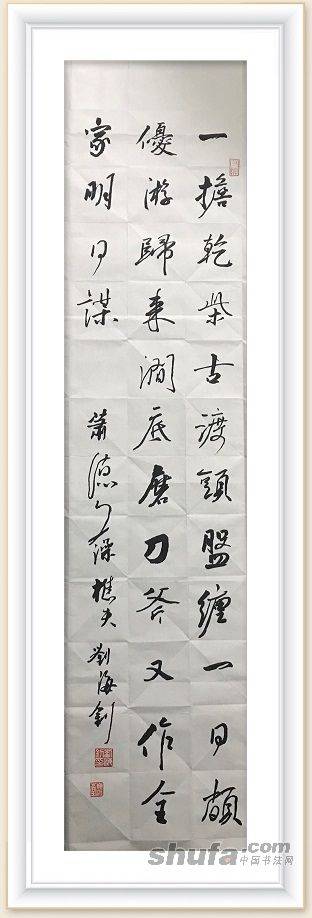 一擔乾柴古渡頭盤纏一日頗
優游歸來澗底磨刀斧又作全
家明日謀
蕭德藻樵夫 劉海
shufa.com
中国书法网